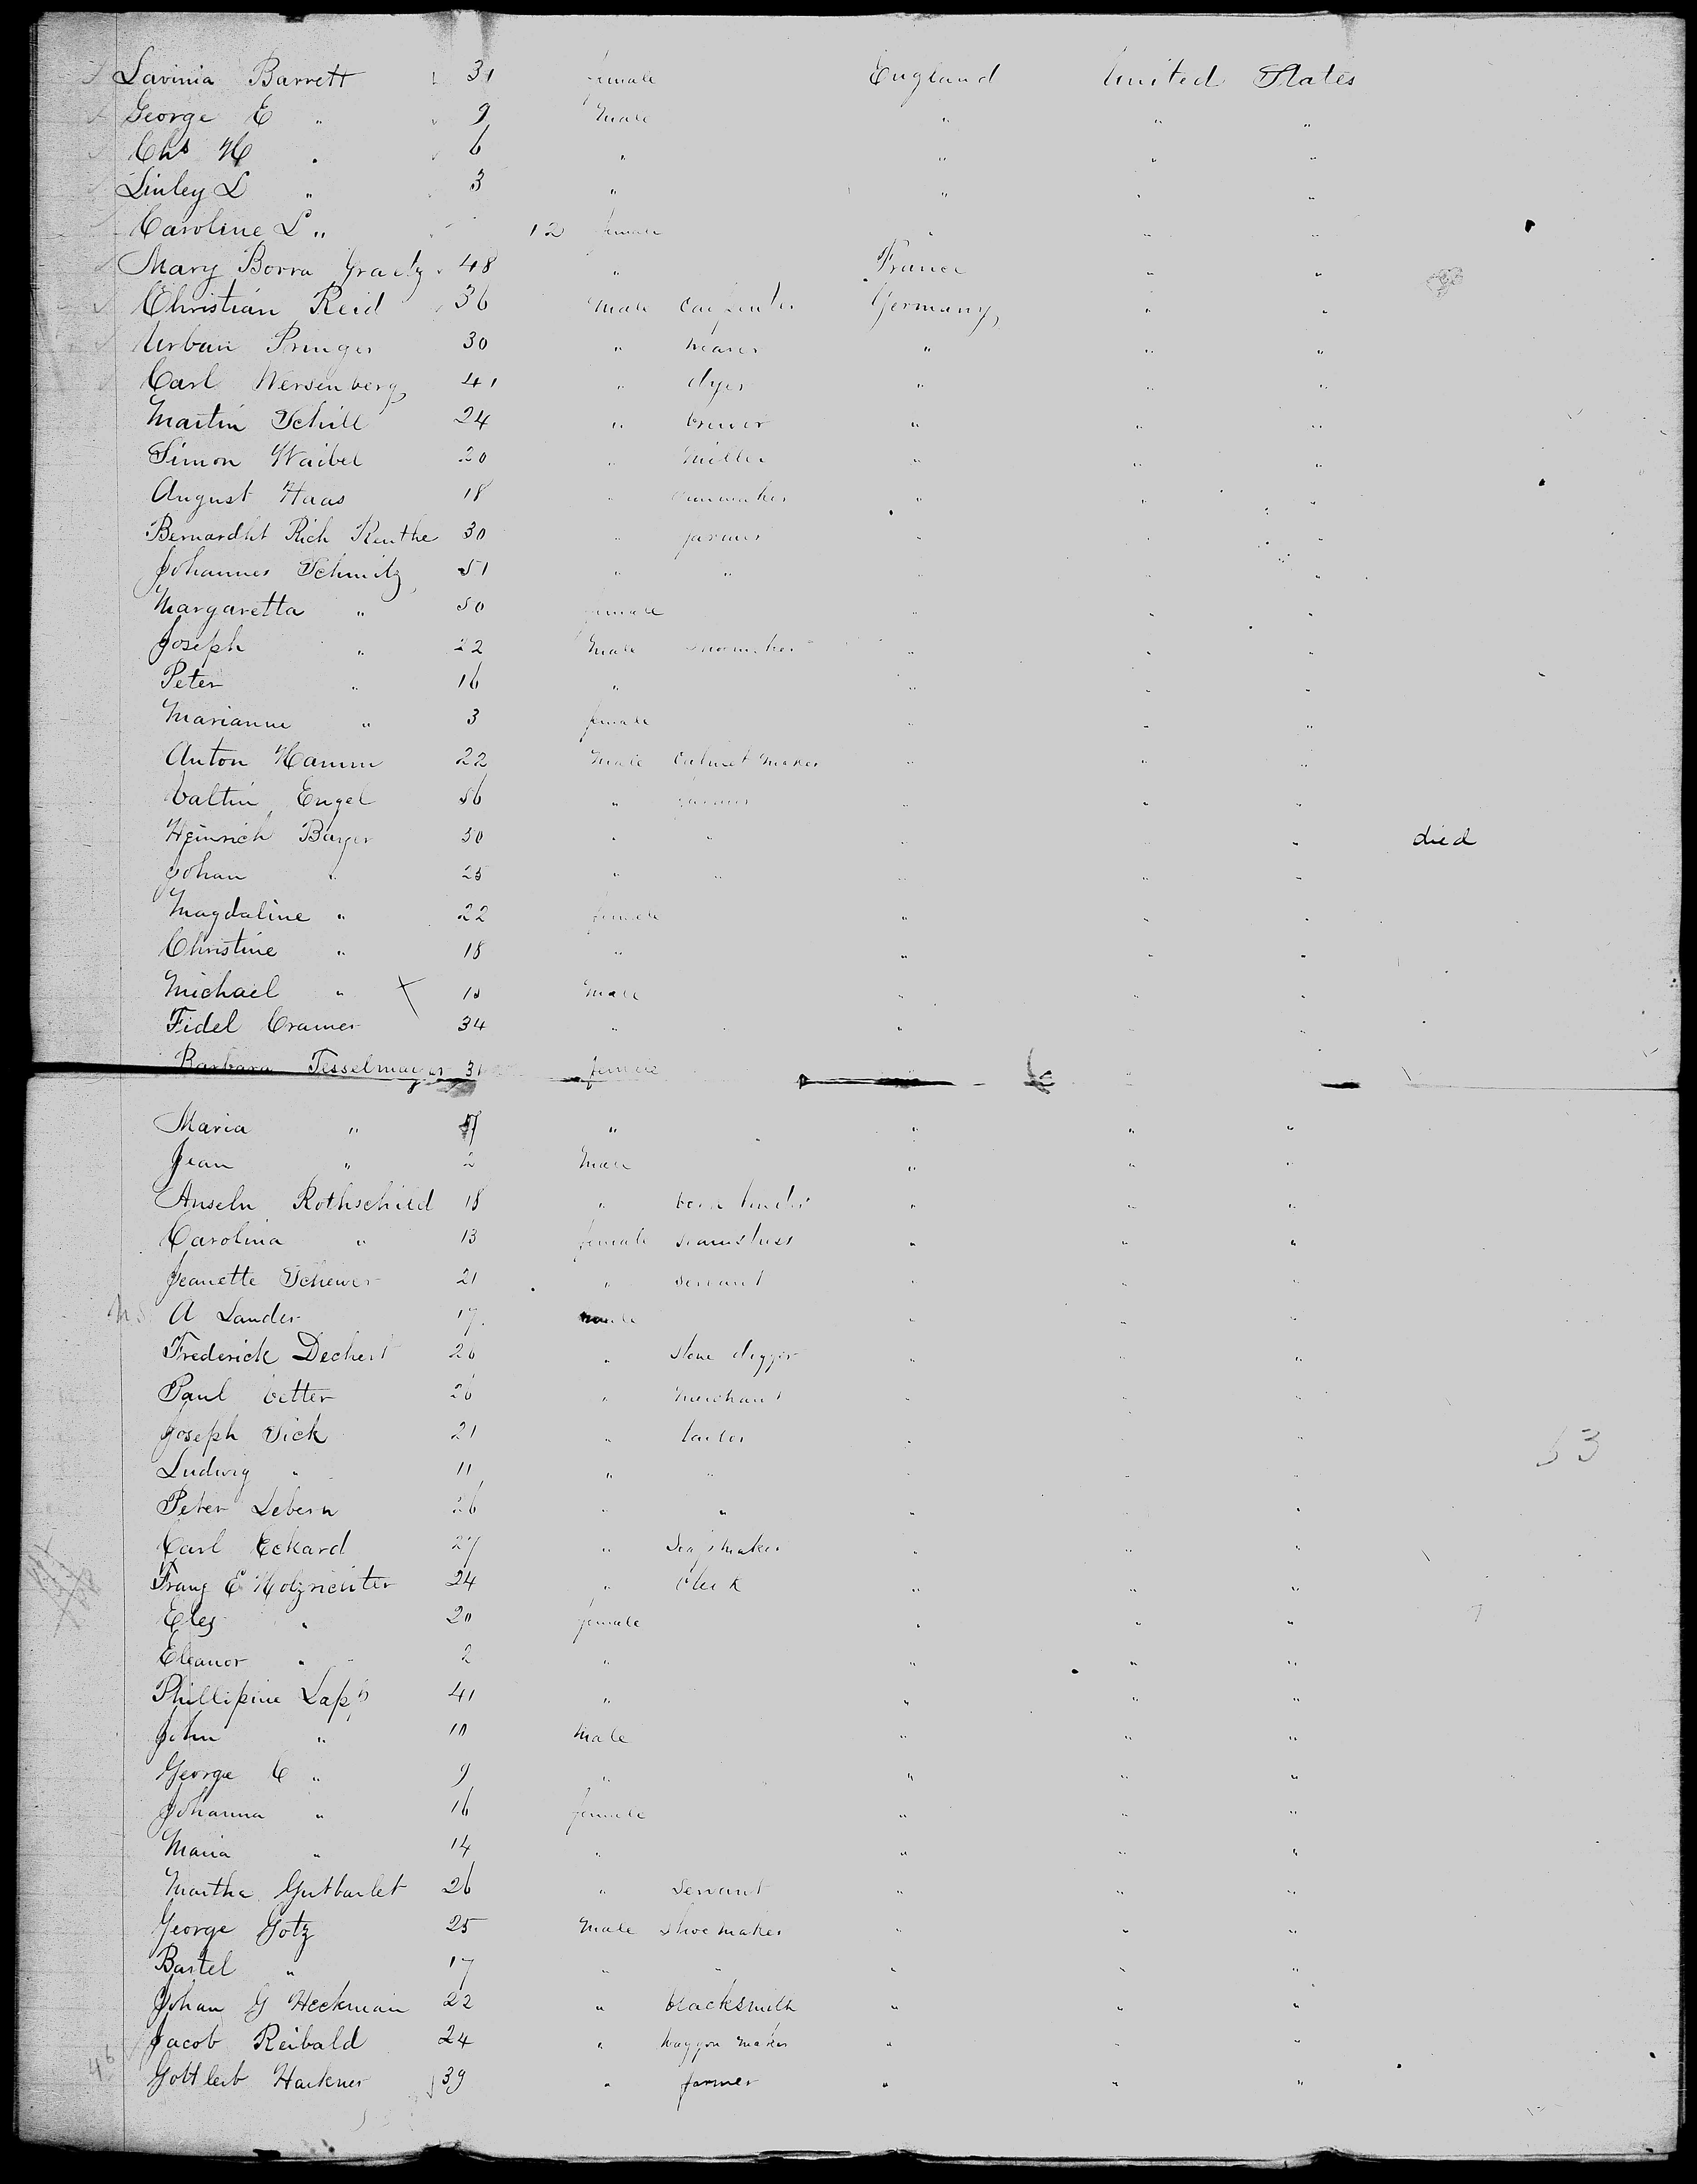 Lavinia Barrett 31 female England United States
George E " 9 Male " " "
Chs H " 6 " " " "
Linley L " 3 " " " "
Caroline L " 12 female " " "
Mary Borra Graetz 48 " France " "
Christian Reid 36 Male Carpenter Germany " "
Urban Prunger 30 " weaver " " "
Carl Wersenberg 41 " dyer " " "
Martin Schill 24 " brewer " " "
Simon Waibel 20 " Miller " " "
August Haas 18 " " " "
Bernardht Rich Renthe 30 " farmer " " "
Johannes Schmitz 51 " " " " "
Margaretta " 50 female " " "
Joseph " 22 Male " " "
Peter " 16 " " " "
Marianne " 3 female " " "
Anton Hamm 22 Male Cabinet Maker " " "
Valtin Engel 56 " farmer " " "
Heinrich Bayer 50 " " " " " died
Johan " 25 " " " " "
Magdaline " 22 female " " "
Christine " 18 " " " "
Michael " Male " " "
Fidel Cramer 34 " " " "
Barbara Tesselmayer 31 female
Maria " " " " "
Jean " 2 Male " " "
Anseln Rothschild 18 " book binder " " "
Carolina " 13 female seamstress " " "
Jeanette Schewer 21 " servant " " "
A Lander 17 male " " "
Frederick Dechert 26 " stone digger " " "
Paul Vetter 26 " Merchant " " "
Joseph Sick 21 " tailor " " "
53
Ludwig " 11 " " " " "
Peter Lebern 26 " " " " "
Carl Eckard 27 " Soapmaker " " "
Franz E Holzrichter 24 " Clerk " " "
Eles " 20 female " " "
Eleanor " 2 " " " "
Phillipine Lapp 41 " " " "
John " 10 Male " " "
George C " 9 " " " "
Johanna " 16 female " " "
Maria " 14 " " " "
Martha Gutbarlet 26 " Servant " " "
George Gotz 25 Male Shoemaker " " "
Bastel " 17 " " " " "
Johan G Heckman 22 " blacksmith " " "
Jacob Reibald 24 " Waggon Maker " " "
46
Gottleib Harkner 39 " farmer " " "